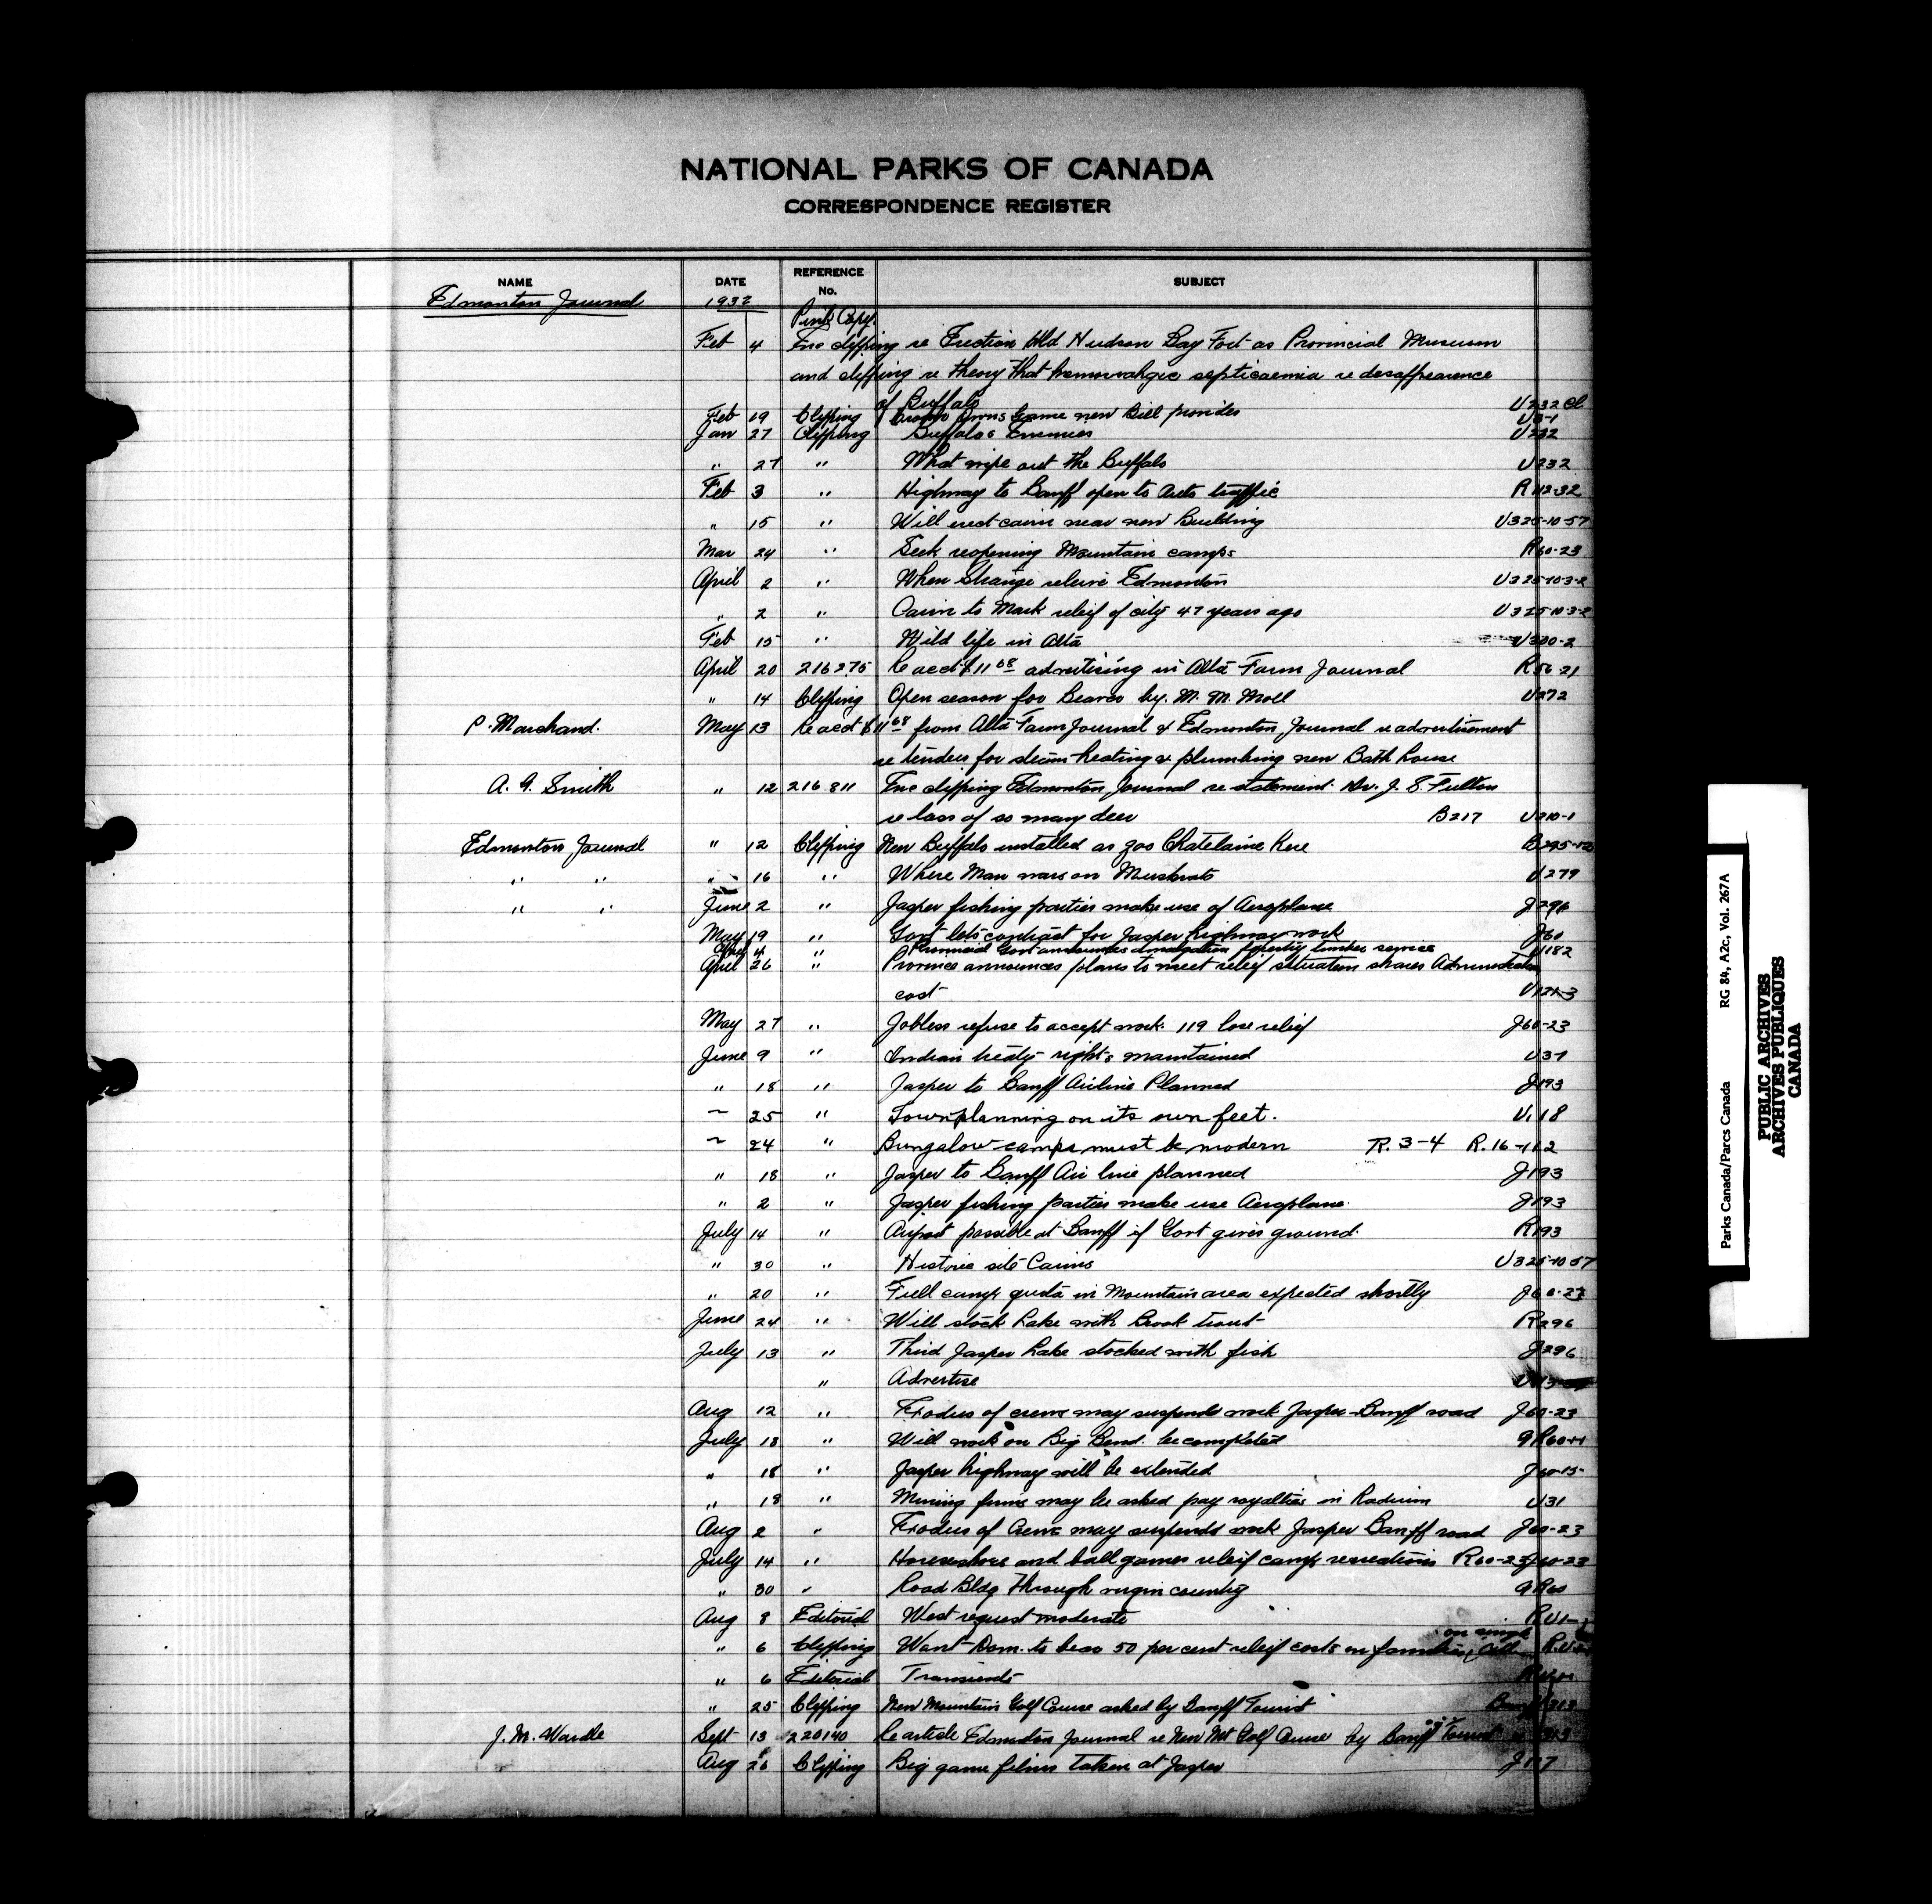 NATIONAL PARKS OF CANADA
CORRESPONDENCE REGISTER
NAME DATE REFERENCE No. SUBJECT
Edmonton Journal 1932
Pink Copy.
Feb 4 Enc clipping re Erection Old Hudson Bay Fort as Provincial Museum
and clipping re theory that hemorrahgic septicaemia re desappearence
of Buffalo U232
Feb 19 Clipping Owns Game new Bill provides
Jan 27 Clipping Buffalos Enemies U232
" 27 " What wipe out the Buffalo U232
Feb 3 " Highway to Banff open to auto traffic R112-32
" 15 " Will erect cairn near new Building U325-10-57
Mar 24 " Seek reopening Mountain camps R60-23
April 2 " When Strange releive Edmonton U325-10-3-2
" 2 " Cairn to Mark relief of city 47 years ago U325-10-3-2
Feb 15 " Wild life in Alta U300-2
April 20 216275 Re acct $11 68 advertising in Alta Farm Journal R56-21
" 14 Clipping Open season for Bears by. M. M. Moll U272
P. Marchand. May 13 Re acct $11 68 from Alta Farm Journal & Edmonton Journal re advertisement
re tenders for steam heating & plumbing new Bath house
A. G. Smith " 12 216 811 Enc clipping Edmonton Journal re statement Dr. J. S. Fulton
re loss of so many deer B217 U210-1
Edmonton Journal " 12 Clipping New Buffalo installed as zoo Chatelaine here
" " " 16 " Where Man wars on Muskrats U279
" " June 2 " Jasper fishing parties make use of Aeroplane J296
May 19 " Govt lets contract for Jasper highway work J60
4 " Provincial Govt announces forestry timber service U182
April 26 " Province announces plans to meet relief situation shares Administration
cost U121-3
May 27 " Jobless refuse to accept work 119 lose relief J60-23
June 9 " Indian treaty rights maintained U31
" 18 " Jasper to Banff Airline Planned J193
~ 25 " Townplanning on its own feet. U.18
~ 24 " Bungalow camps must be modern R.3-4 R.16-112
" 18 " Jasper to Banff Air line planned J193
" 2 " Jasper fishing parties make use Aeroplane J193
July 14 " Airport possible at Banff if Govt gives ground. R193
" 30 " Historic site Cairns U325-10-57
" 20 " Full camp quota in Mountain area expected shortly J60-23
June 24 " Will stock Lake with Brook trout R296
July 13 " Third Jasper Lake stocked with fish J296
" Advertise
Aug 12 " Exodus of crews may suspend work Jasper-Banff road J60-23
July 18 " Will work on Big Bend. be completed
" 18 " Jasper highway will be extended J60-15
" 19 " Mining firms may be asked pay royalties in Radium U31
Aug 2 " Exodus of crews may suspends work Jasper Banff road J60-23
July 14 " Horseshoes and ball games relief camps recreations R60-23 J60-23
" 30 " Road Bldg through virgin country
Aug 8 Editorial West request moderate
on single
" 6 Clipping Want Dom. to bear 50 per cent relief costs on families
" 6 Editorial Transients
" 25 Clipping New Mountain Golf Course asked by Banff Tourist
J. M. Wardle Sept 13 220140 Re article Edmonton Journal re New Mt Golf Course by Banff Tourist
Aug 26 Clipping Big game films taken at Jasper J117
Parks Canada/Parcs Canada RG 84, A2c, Vol. 267A
PUBLIC ARCHIVES
ARCHIVES PUBLIQUES
CANADA